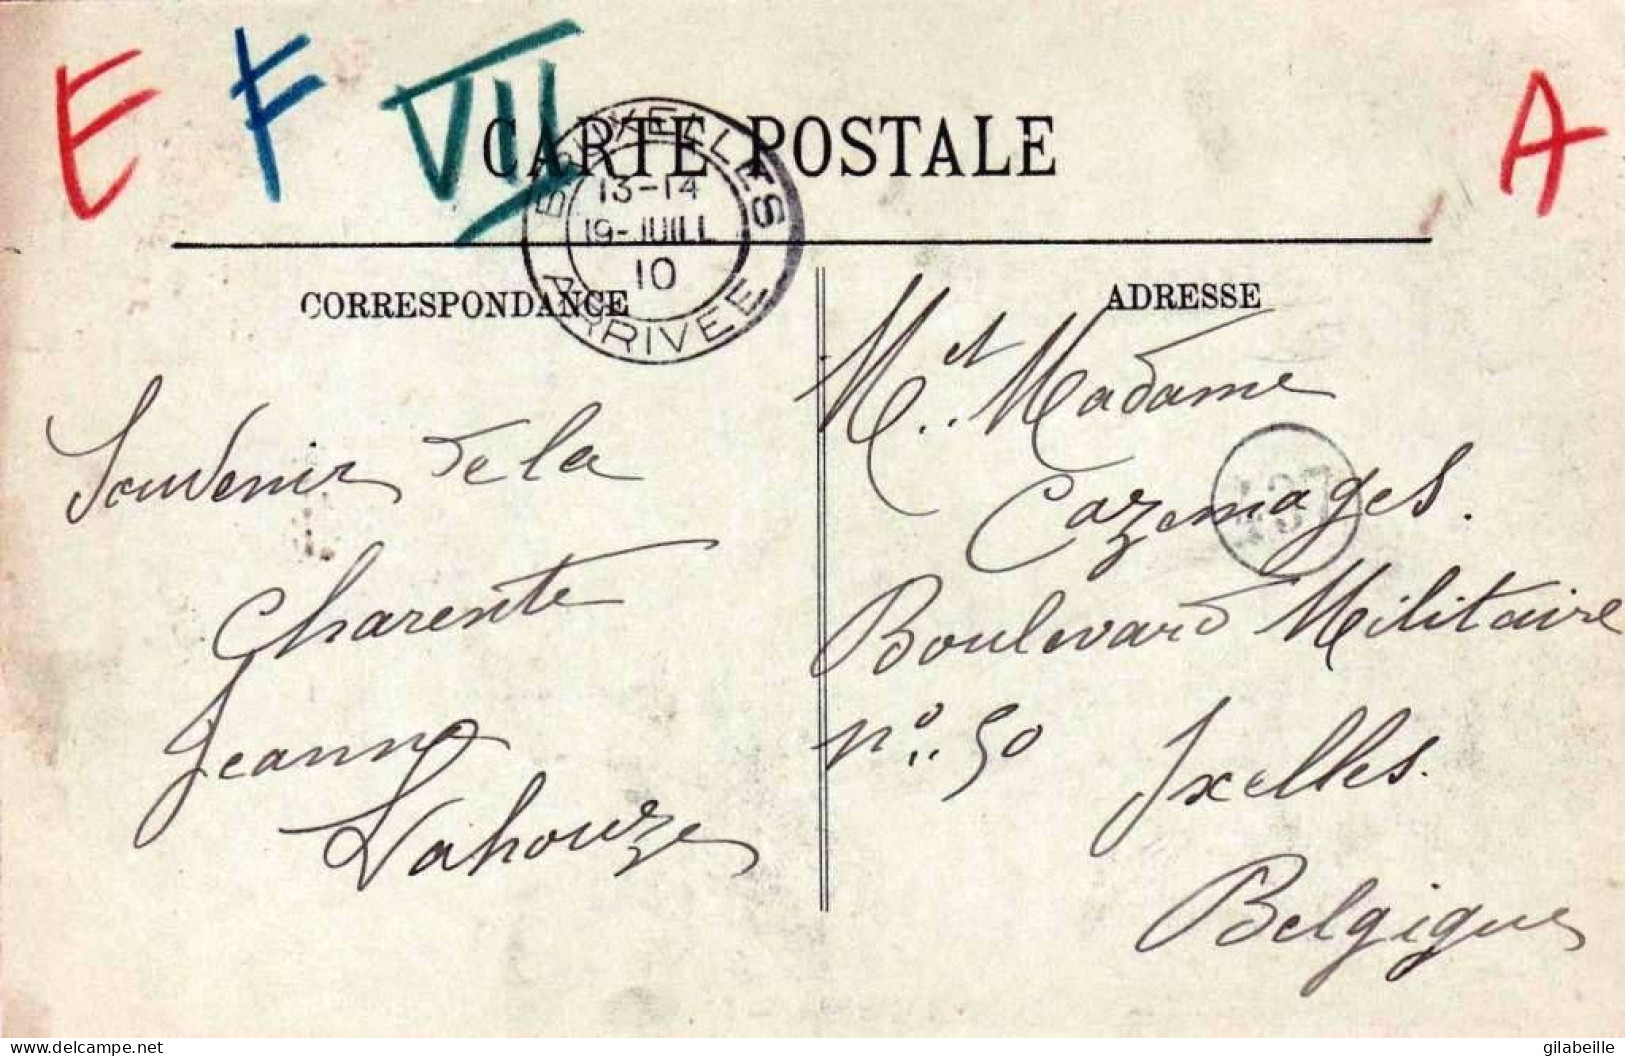 E F VII A
CARTE POSTALE
BRUXELLES
13-14
19-JUILL
10
ARRIVEE
CORRESPONDANCE
Souvenir de la
Charente
Jeanne
Lahouze
ADRESSE
M. et Madame
Cazemages.
Boulevard Militaire
n°.. 50
Ixelles.
Belgique
www.delcampe.net
gilabeille